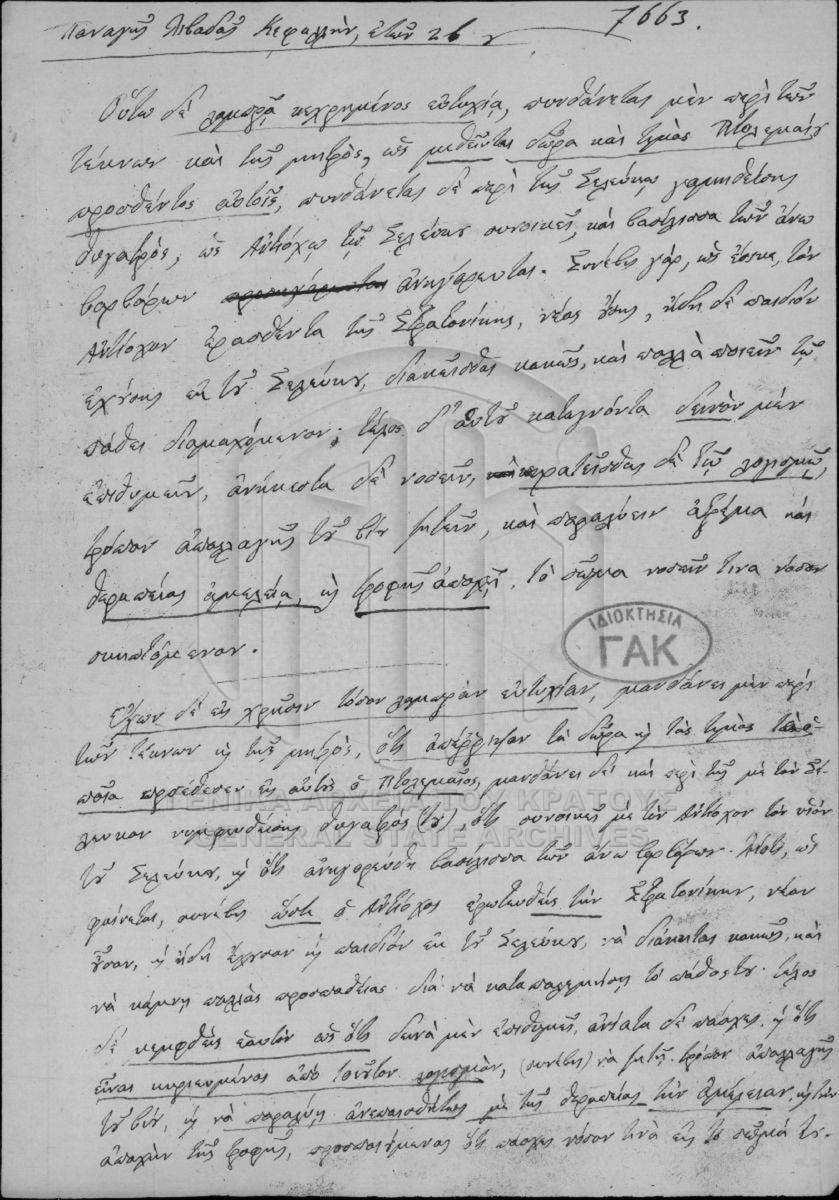 Παναγῆς Λιβαδᾶς Κεφαλλὴν, ἐτῶν 26
7663.
Οὕτω δὲ λαμπρᾷ κεχρημένος εὐτυχίᾳ, πυνθάνεται μὲν περὶ τῶν
τέκνων καὶ τῆς μητρὸς, ὡς μεθεῖνται δῶρα καὶ τιμὰς Πτολεμαίου
προσθέντος αὐτοῖς, πυνθάνεται δὲ περὶ τῆς Σελεύκῳ γαμηθείσης
θυγατρὸς, ὡς Ἀντιόχῳ τῷ Σελεύκου συνοικεῖ, καὶ βασίλισσα τῶν ἄνω
βαρβάρων ἀνηγόρευται. Συνέβη γὰρ, ὡς ἔοικε, τὸν
Ἀντίοχον ἐρασθέντα τῆς Στρατονίκης, νέας οὔσης, ἤδη δὲ παιδίον
ἐχούσης ἐκ τοῦ Σελεύκου, διακεῖσθαι κακῶς, καὶ πολλὰ ποιεῖν τῷ
πάθει διαμαχόμενον· τέλος δ' αὑτοῦ καταγνόντα δεινῶν μὲν
ἐπιθυμεῖν, ἀνήκεστα δὲ νοσεῖν, κρατεῖσθαι δὲ τῷ λογισμῷ,
τρόπον ἀπαλλαγῆς τοῦ βίου ζητεῖν, καὶ παραλύειν ἀτρέμα καὶ
θεραπείας ἀμελείᾳ, καὶ τροφῆς ἀποχῇ, τὸ σῶμα νοσεῖν τινα νόσον
σκηπτόμενον.
Ἔχων δὲ εἰς χρῆσιν τόσον λαμπρὰν εὐτυχίαν, μανθάνει μὲν περὶ
τῶν τέκνων καὶ τῆς μητρὸς, ὅτι ἀπέρριψαν τὰ δῶρα καὶ τὰς τιμὰς τὰ ὁ-
ποῖα προσέθεσεν εἰς αὐτοὺς ὁ Πτολεμαῖος, μανθάνει δὲ καὶ περὶ τῆς μὲ τὸν Σέ-
λευκον νυμφευθείσης θυγατρὸς (του) ὅτι συνοικεῖ μὲ τὸν Ἀντίοχον τὸν υἱὸν
τοῦ Σελεύκου, καὶ ὅτι ἀνηγορεύθη βασίλισσα τῶν ἄνω βαρβάρων. Διότι, ὡς
φαίνεται, συνέβη ὥστε ὁ Ἀντίοχος ἐρωτευθεὶς τὴν Στρατονίκην, νέαν
οὖσαν, καὶ ἤδη ἔχουσαν καὶ παιδίον ἐκ τοῦ Σελεύκου, νὰ διάκηται κακῶς, καὶ
νὰ κάμνῃ πολλὰς προσπαθείας διὰ νὰ καταπολεμήσῃ τὸ πάθος του· τέλος
δὲ μεμφθεὶς ἑαυτὸν ὡς ὅτι δεινὰ μὲν ἐπιθυμεῖ, ἀνίατα δὲ πάσχει, καὶ ὅτι
εἶναι κυριευμένος ἀπὸ τοιοῦτον λογισμὸν, (συνέβη) νὰ ζητῇ τρόπον ἀπαλλαγῆς
τοῦ βίου, καὶ νὰ παραλύῃ ἀνεπαισθήτως μὲ τῆς θεραπείας τὴν ἀμέλειαν, καὶ τὴν
ἀποχὴν τῆς τροφῆς, προσποιούμενος ὅτι πάσχει νόσον τινὰ εἰς τὸ σῶμά του.
ΙΔΙΟΚΤΗΣΙΑ
ΓΑΚ
ΓΕΝΙΚΑ ΑΡΧΕΙΑ ΤΟΥ ΚΡΑΤΟΥΣ
GENERAL STATE ARCHIVES